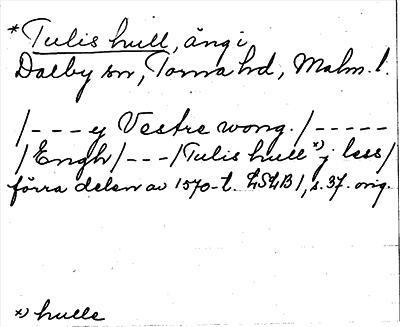 *Tulis hull, äng i
Dalby sn, Torna hd, Malm. l.
/---y Vestre wong. /-----
/Engh/---/Tulis hull x) j less/
förra delen av 1570-t. LSLB 1, s. 37. orig.
x) hulle